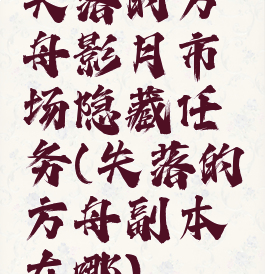 失落的方
舟影月市
场隐藏任
务(失落的
方舟副本
在哪)